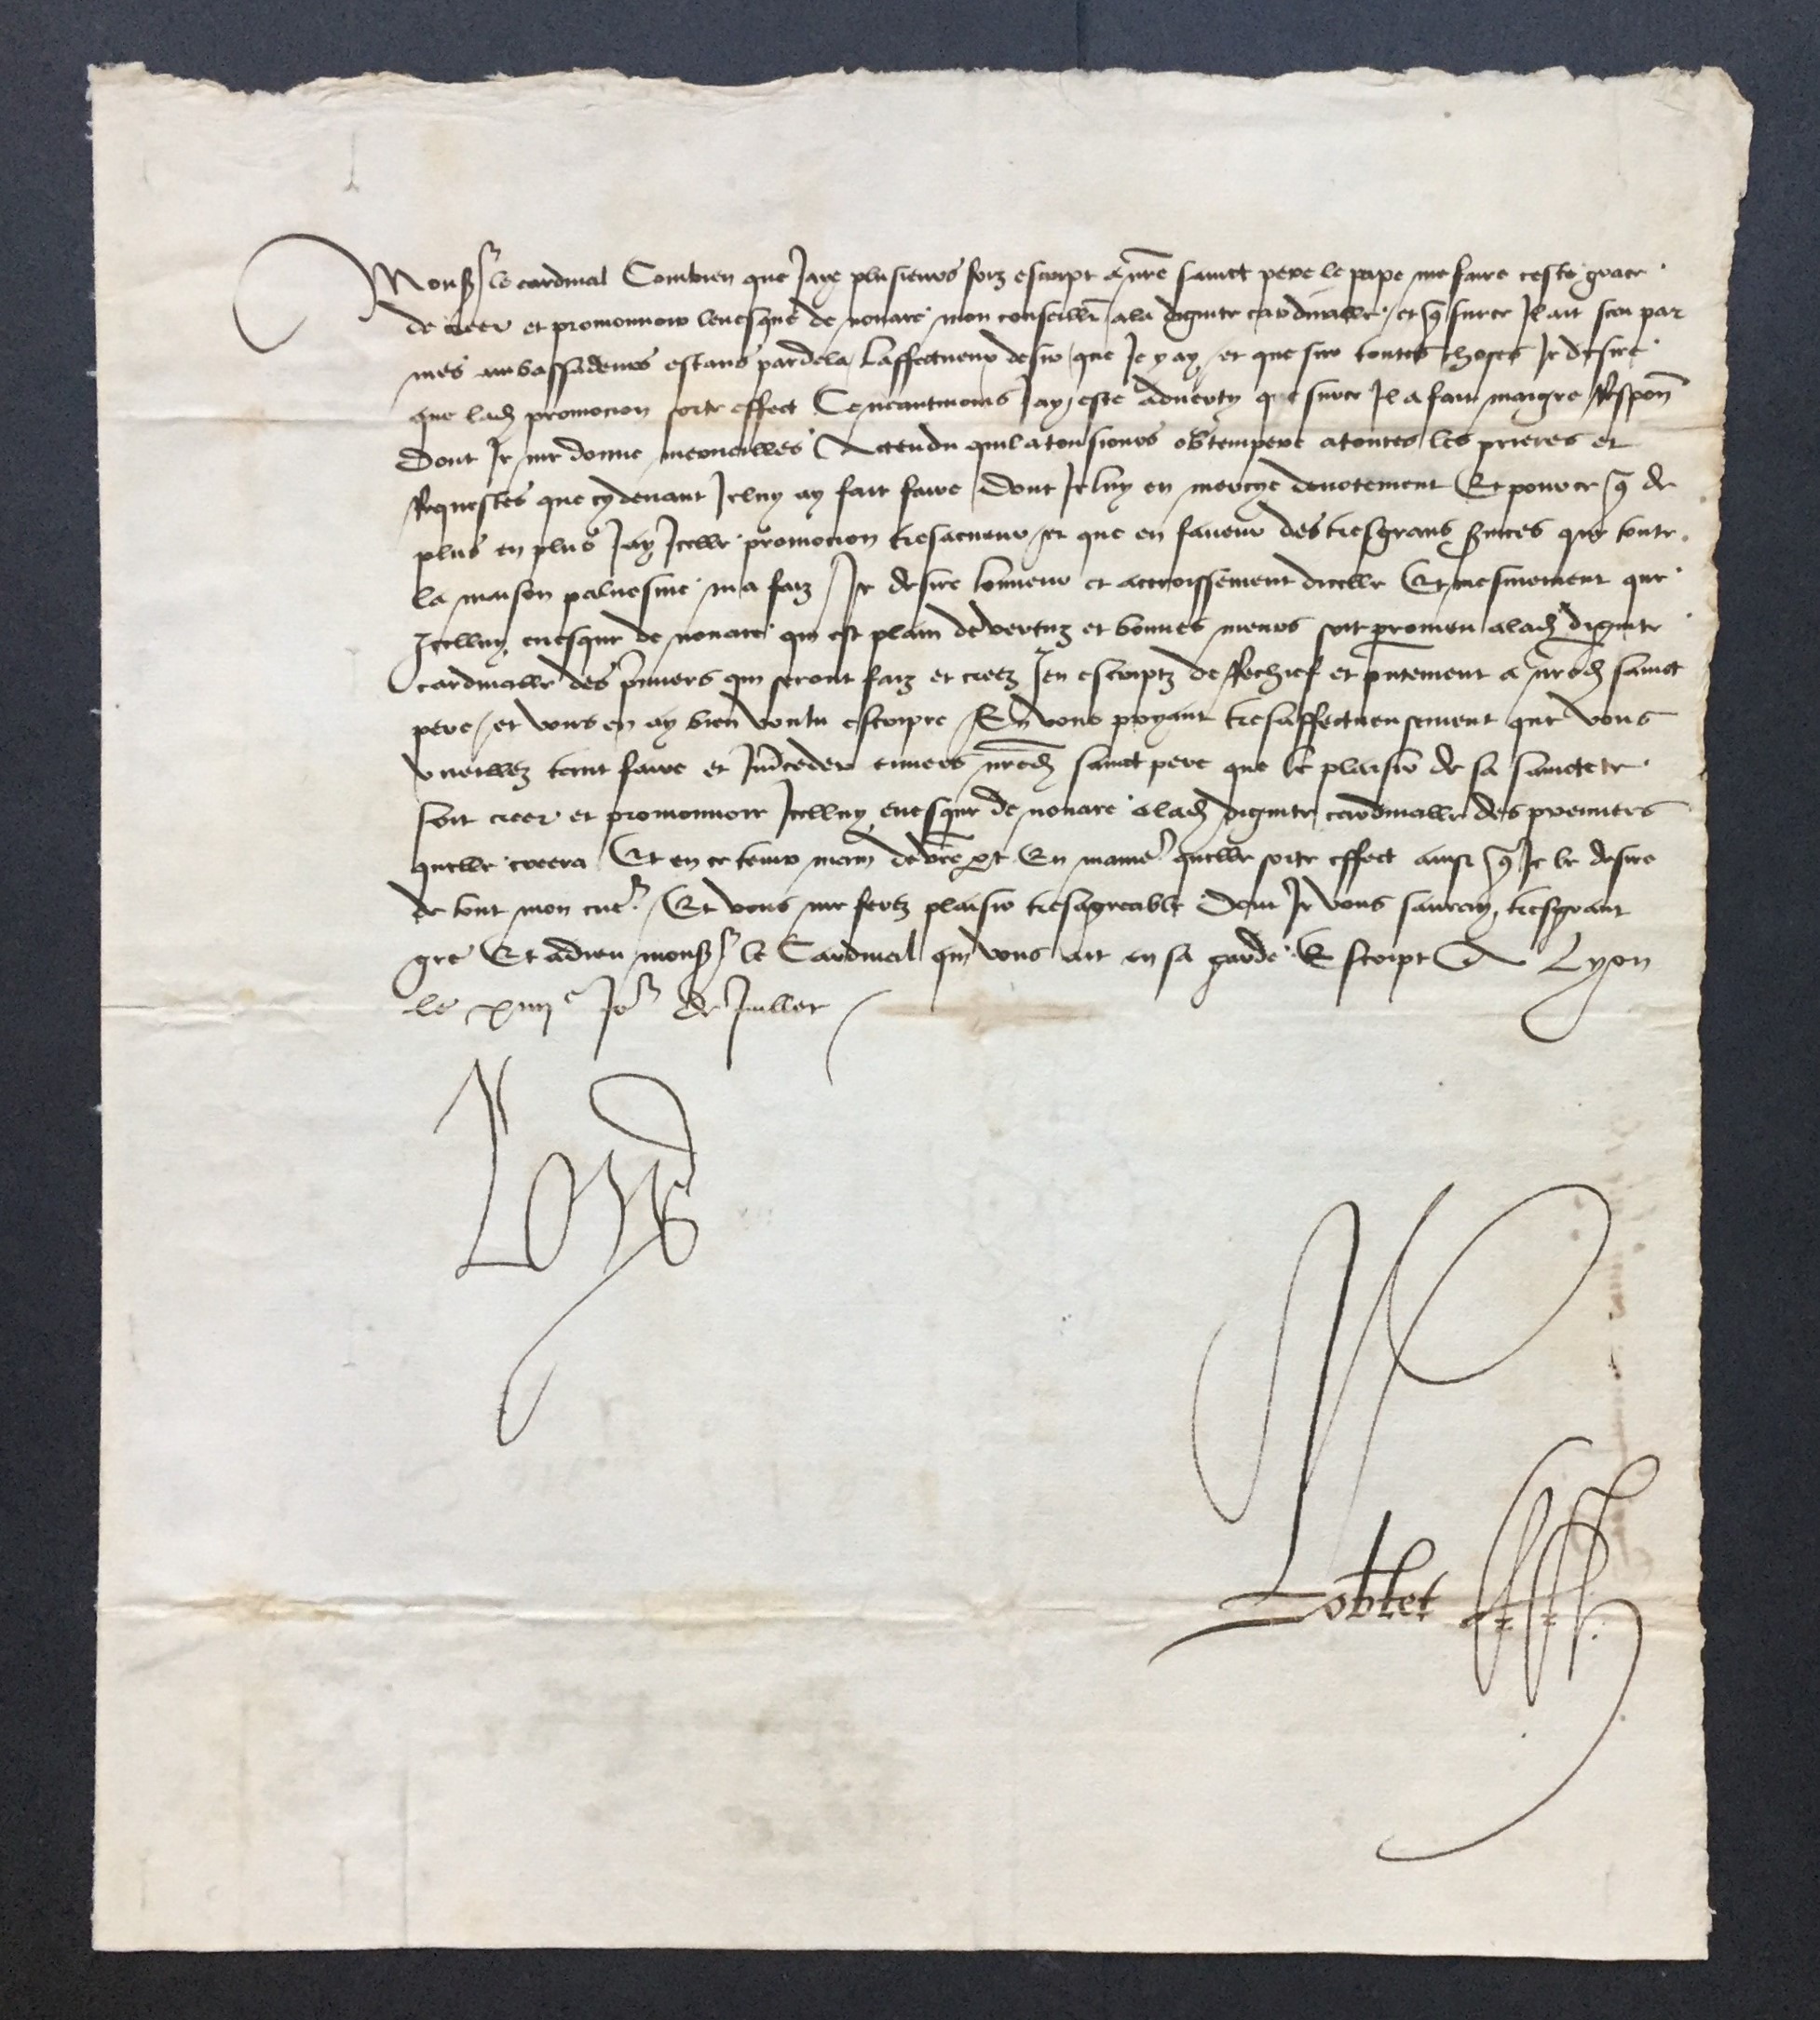 Monsr le cardinal Combien que Jaye plusieurs foiz escript a nre sainct pere le pape me faire ceste grace
de creer et promouvoir levesque de novare mon conseiller ala dignite cardinalle et q surce Il ait sceu par
mes ambassadeurs estans pardela Laffectueux desir que Je y ay et que sur toutes choses Je desire
que lad promocion sorte effect Ce neantmoins Jay este adverty que surce Il a fait maigre Respon
Dont Je me donne merveilles Actendu quil a tousiours obtempere a toutes les prieres et
Requestes que cy devant Je luy ay fait faire Dont Je luy en mercye devotement Et pource q de
plus en plus Jay Icelle promocion tresacueur et que en faveur des tresgrans svices que toute
la maison palvesine ma faiz Je desire lonneur et accroissement dicelle Et mesmement que
Icelluy evesque de novare qui est plain de vertuz et bonnes meurs soit promeu alad dignite
cardinalle des pmiers qui seront faiz et creez Jen escriptz de Rechief et pntement a nred sainct
pere et vous en ay bien voulu escripre En vous priant tresaffectueusement que vous
vueillez tant faire et Intceder envers nred sainct pere que le plaisir de sa sainctete
soit creer et promouvoir Icelluy evesque de novare alad dignite cardinalle des premiers
quelle creera Et en ce tenir main de vre pt En maniere quelle sorte effect ainsi q Je le desire
de tout mon cuer Et vous me ferez plaisir tresagreable Dont Je vous sauray tresgrant
gre Et adieu monsr le Cardinal qui vous ait en sa garde Escript A Lyon
le xiiiie Jor de Juillet
Loys
Robtet